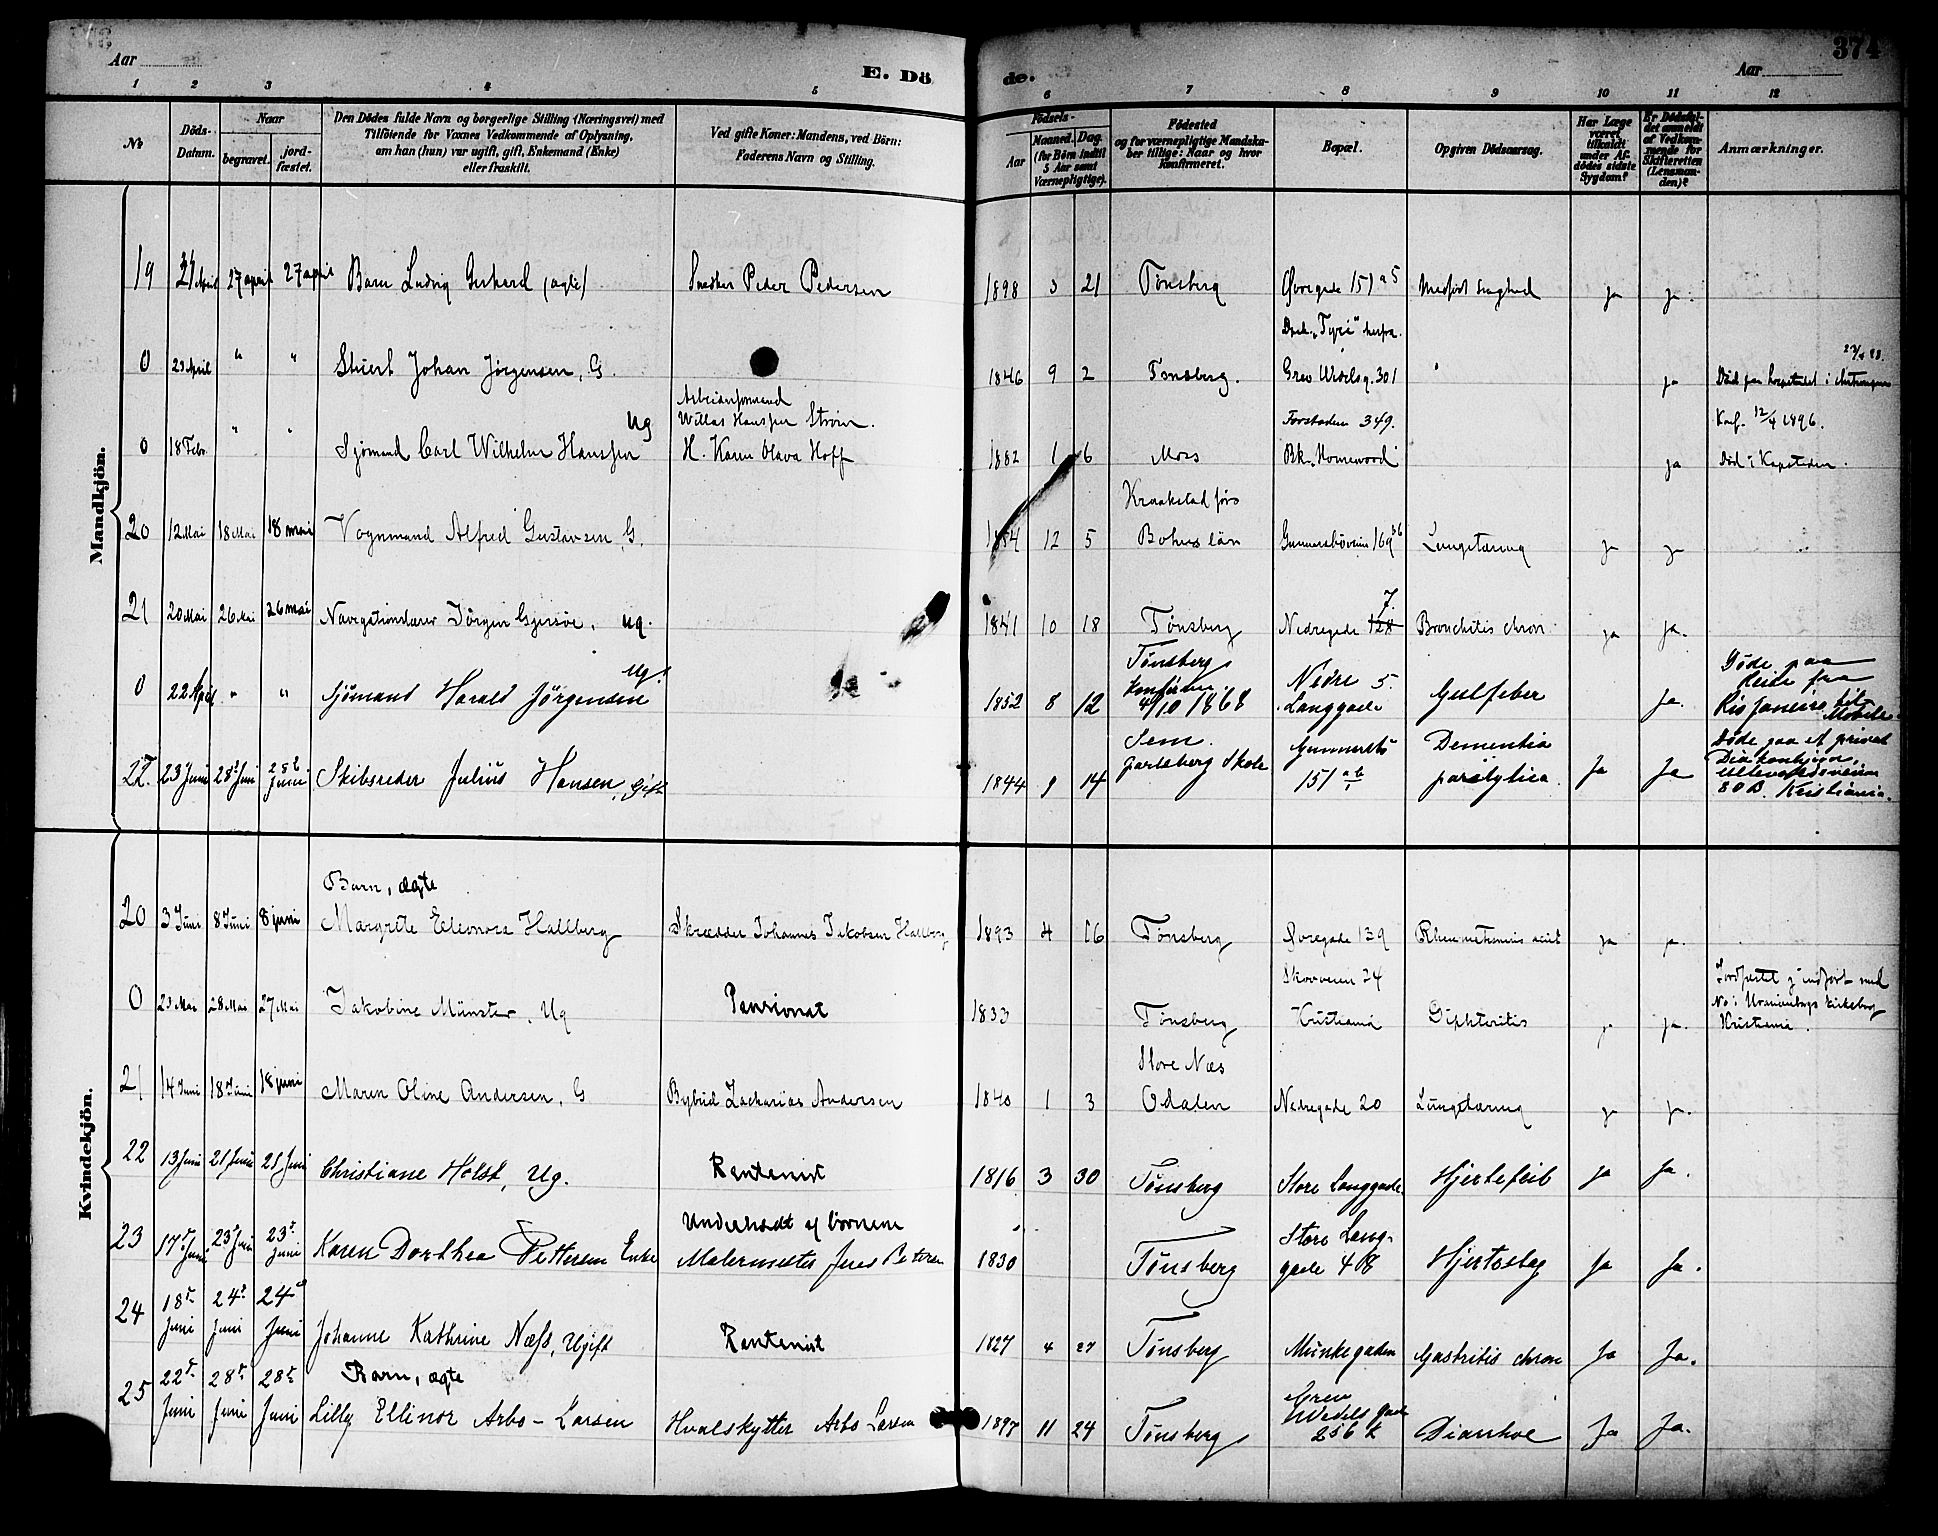 374
Aar
E. Dö
de.
Aar
1 2 3 4 5 6 7 8 9 10 11 12
No
Döds-Datum.
Naar
begravet.
jord-fæstet.
Den Dödes fulde Navn og borgerlige Stilling (Næringsvei) med
Tilföiende for Voxnes Vedkommende af Oplysning,
om han (hun) var ugift, gift, Enkemand (Enke)
eller fraskilt.
Ved gifte Koner: Mandens, ved Börn:
Faderens Navn og Stilling.
Födsels-
Aar
Maaned. Dag.
(for Börn indtil
5 Aar samt
Værnepligtige).
Födested
og for værnepligtige Mandska-
ber tillige: Naar og hvor
konfirmeret.
Bopæl.
Opgiven Dödsaarsag.
Har Læge
været
tilkaldt
under Af-
dödes sidste
Sygdom?
Er Dödsfal-
det anmeldt
af Vedkom-
mende for
Skifteretten
(Lensman-
den)?
Anmærkninger.
Mandkjön.
19 April 27 april 27 april Barn Ludvig Gerhard (ægte) Snedker Peder Pedersen 1898 3 21 Tønsberg Øvregade 151 a 5 Medfødt Svaghed ja ja.
0 23 April " " Stuert Johan Jörgensen, G. 1846 9 2 Tønsberg. Grev Wedelsg. 301 " ja
0 18 Febr. " " Sjömand Carl Wilhelm Hanssen Ug
Arbeidsformand
H. Karen Olava Hoff 1882 1 6 Moss
Forstaden 349.
Bk. "Homewood" ja
Konf. 12/4 1896.
Död i Kapstaden.
20 12 Mai 18 Mai 18 mai Vognmand Alfred Gustavsen, G. 1854 12 5
Bohus län Lungetæring ja ja
21 20 Mai 26 Mai 26 mai Jörgen Gjersöe, ug. 1841 10 18 Tønsberg Nedregade 7. 128 Bronchitis chron. ja ja.
0 22 April " " Sjømand Harald Jørgensen Ug. 1852 8 12
Tønsberg
4/10 1868
Nedre 5.
Langgade Gulfeber ja.
Døde paa
Reise fra
Rio Janeiro til
Mobile.
22 23 Juni 28 Juni 25 Juni Skibsreder Julius Hansen, Gift 1844 9 14
Sem.
Jarlsberg Skole
151
Dementia
paralytica. Ja Ja
Døde paa et privat
80 B. Kristiania.
Kvindekjön.
20 3 Juni 8 Juni 8 juni
Barn, ægte
Margrete Eleonore Hallberg Skrædder Johannes Jakobsen Hallberg 1893 4 16 Tønsberg 139 ja ja.
0 23 Mai 28 Mai 27 Mai Jakobine Münster, Ug Pensionat 1833 Tønsberg
24
Kristiania Diphteritis ja ja.
Jordfæstet
Kristiania.
21 14 Juni 18 Juni 18 juni Maren Oline Andersen, G Bybud Zacharias Andersen 1840 1 3
Store Næs
Odalen Nedregade 20 Lungetæring ja ja.
22 13 Juni 21 Juni 21 Juni Christiane Holst, Ug. Rentenist 1816 3 30 Tønsberg Store Langgade. Hjertefeil ja Ja.
23 17 Juni 23 Juni 23 Juni Karen Dorthea Pettersen Enke
Underholdt af børnene
Malermester Jens Petersen 1830 Tønsberg
Store Lang-
gade 48 Hjerteslag Ja Ja.
24 18 Juni 24 Juni 24 Juni Johanne Kathrine Næss, Ugift Rentenist 1827 4 27 Tønsberg Munkegaden Gastritis chron Ja Ja.
25 22 Juni 28 Juni 28 Juni
Barn, ægte
Lilly Ellinor Arbo-Larsen Hvalskytter Arbo Larsen 1897 11 24 Tønsberg
Grev
Wedels gade
256 k Diarrhoe Ja Ja.